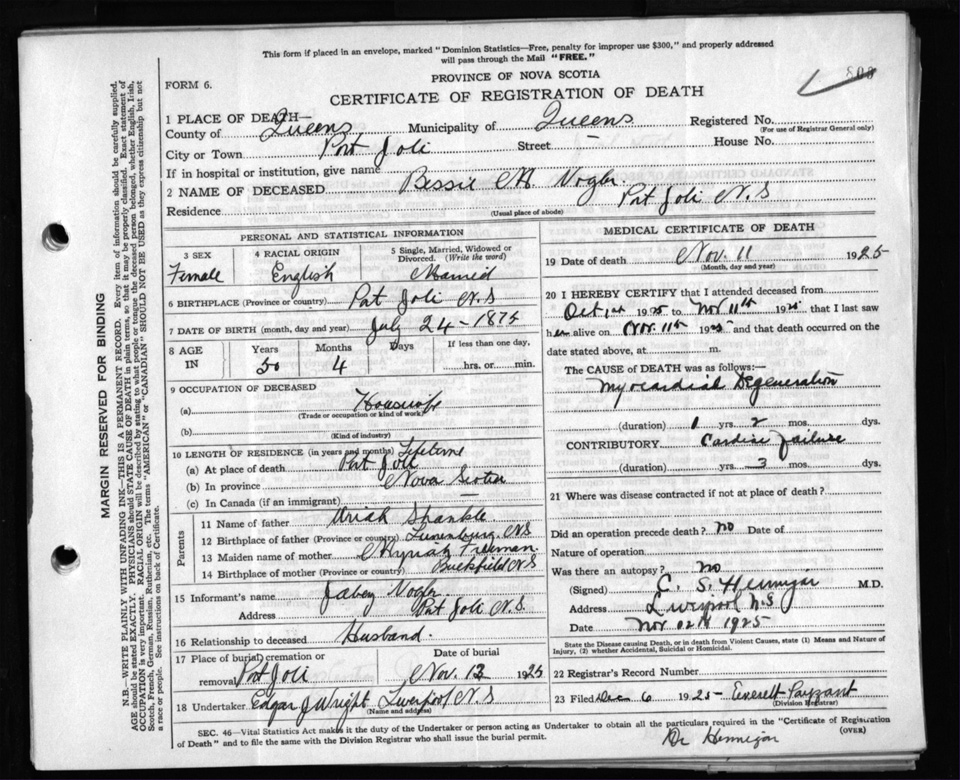 This form if placed in an envelope, marked "Dominion Statistics—Free, penalty for improper use $300," and properly addressed
will pass through the Mail "FREE."
PROVINCE OF NOVA SCOTIA
FORM 6.
808
CERTIFICATE OF REGISTRATION OF DEATH
1 PLACE OF DEATH—
County of Queens Municipality of Queens Registered No.
(For use of Registrar General only)
City or Town Port Joli Street — House No.
If in hospital or institution, give name
2 NAME OF DECEASED Bessie M. Vogler
Residence Port Joli N.S
(Usual place of abode)
PERSONAL AND STATISTICAL INFORMATION
3 SEX 4 RACIAL ORIGIN 5 Single, Married, Widowed or Divorced. (Write the word)
Female English Married
6 BIRTHPLACE (Province or country) Port Joli N.S
7 DATE OF BIRTH (month, day and year) July 24-1875
8 AGE IN Years Months Days If less than one day,
50 4 hrs. or min.
9 OCCUPATION OF DECEASED
(a) Housewife
(Trade or occupation or kind of work)
(b)
(Kind of industry)
10 LENGTH OF RESIDENCE (in years and months) Lifetime
(a) At place of death Port Joli
(b) In province Nova Scotia
(c) In Canada (if an immigrant)
Parents
11 Name of father Uriah Shankle
12 Birthplace of father (Province or country) Lunenburg, N.S
13 Maiden name of mother Myriah Freeman
14 Birthplace of mother (Province or country) Buckfield N S
15 Informant's name Jabez Vogler
Port Joli N.S.
16 Relationship to deceased Husband.
17 Place of burial, cremation or removal Port Joli Date of burial Nov. 13 1925
18 Undertaker Edgar J Wright Liverpool N.S
(Name and address)
MEDICAL CERTIFICATE OF DEATH
19 Date of death Nov. 11 1925
(Month, day and year)
20 I HEREBY CERTIFY that I attended deceased from
Oct 1st 1925 to Nov 11th 1925 that I last saw
her alive on Nov. 11th 1925 and that death occurred on the
date stated above, at m.
The CAUSE of DEATH was as follows:—
Myocardial Degeneration
(duration) 1 yrs. 2 mos. dys.
CONTRIBUTORY Cardiac Failure
(duration) yrs. 3 mos. dys.
21 Where was disease contracted if not at place of death?
Did an operation precede death? no Date of
Nature of operation
Was there an autopsy? no
(Signed) C. S. Hennigar M.D.
Address Liverpool N.S
Date Nov 12th 1925
State the Disease causing Death, or in death from Violent Causes, state (1) Means and Nature of
Injury, (2) whether Accidental, Suicidal or Homicidal.
22 Registrar's Record Number
23 Filed Dec 6 1925 Everett Payzant
(Division Registrar)
SEC. 46—Vital Statistics Act makes it the duty of the Undertaker or person acting as Undertaker to obtain all the particulars required in the "Certificate of Registration
of Death" and to file the same with the Division Registrar who shall issue the burial permit.
(OVER)
Dr Hennigar
MARGIN RESERVED FOR BINDING
N.B.—WRITE PLAINLY WITH UNFADING INK—THIS IS A PERMANENT RECORD. Every item of information should be carefully supplied.
AGE should be stated EXACTLY. PHYSICIANS should STATE CAUSE OF DEATH in plain terms, so that it may be properly classified. Exact statement of
OCCUPATION is very important. RACIAL ORIGIN will be described by stating to what people or tongue the deceased person belonged, whether English, Irish,
Scotch, French, German, Russian, Ruthenian, etc. The terms "AMERICAN" or "CANADIAN" SHOULD NOT BE USED as they express citizenship but not
a race or people. See instructions on back of Certificate.